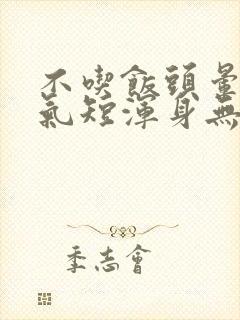 不喫飯頭暈
氣短渾身無
季志會